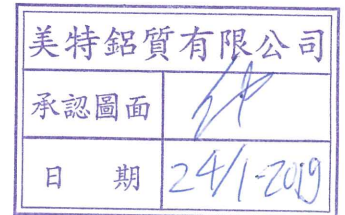 美特鋁質有限公司
承認圖面
日 期 24/1-2019